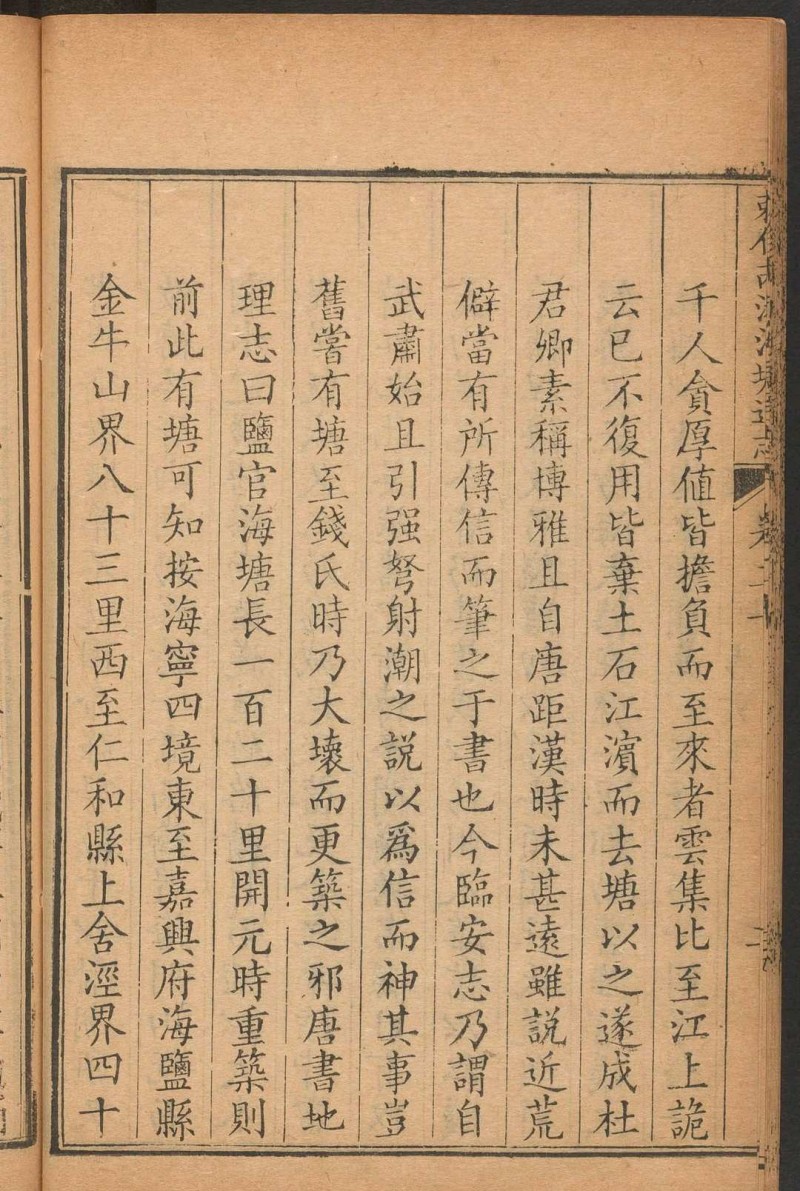 千人貪厚值皆擔負而至來者雲集比至江上詭
云已不復用皆棄土石江濱而去塘以之遂成杜
君卿素稱博雅且自唐距漢時未甚遠雖説近荒
僻當有所傳信而筆之于書也今臨安志乃謂自
武肅始且引强弩射潮之説以爲信而神其事豈
舊嘗有塘至錢氏時乃大壞而更築之邪唐書地
理志曰鹽官海塘長一百二十里開元時重築則
前此有塘可知按海寧四境東至嘉興府海鹽縣
金牛山界八十三里西至仁和縣上舍涇界四十